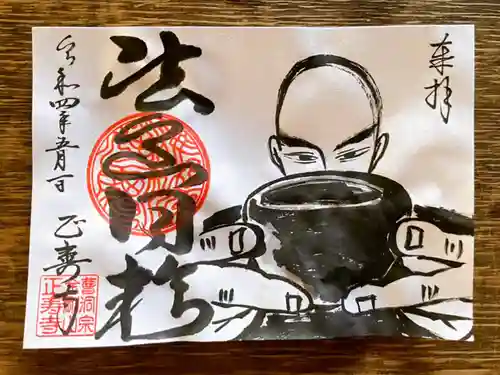 奉拝
法食同
令和四年五月一日
正寿寺
曹洞宗
正寿寺